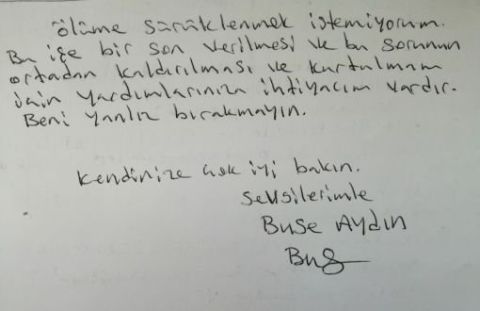 ölüme sürüklenmek istemiyorum.
Bu işe bir son verilmesi ve bu sorunun
ortadan kaldırılması ve kurtulmam
için yardımlarınıza ihtiyacım vardır.
Beni yanlız bırakmayın.
Kendinize çok iyi bakın.
Sevgilerimle
Buse Aydın